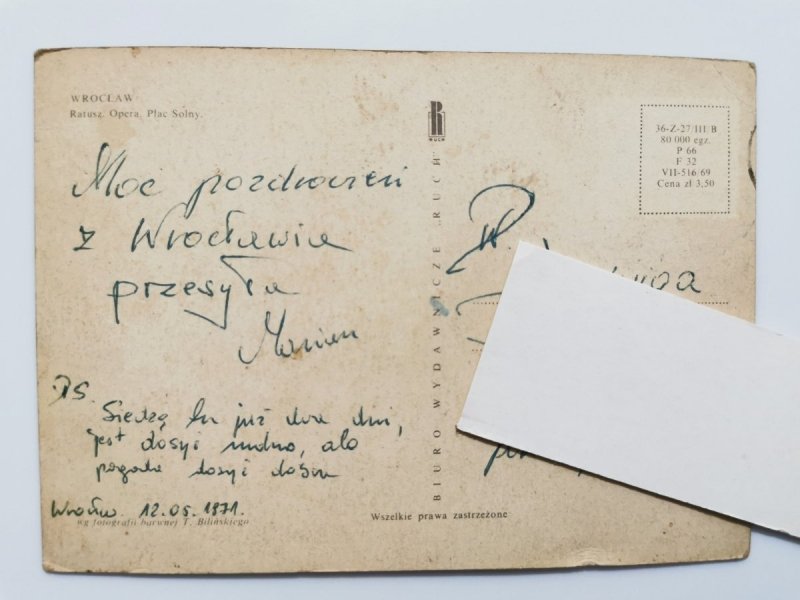 WROCŁAW
Ratusz. Opera. Plac Solny.
Moc pozdrowień
z Wrocławia
przesyła
Marian
PS.
Siedzę tu już dwa dni,
jest dosyć nudno, ale
pogoda dosyć dobra
Wrocław. 12.05.1971.
wg fotografii barwnej T. Bilińskiego
BIURO WYDAWNICZE „RUCH”
R
RUCH
36-Z-27/III B
80 000 egz.
P 66
F 32
VII-516/69
Cena zł 3,50
W.
Wszelkie prawa zastrzeżone